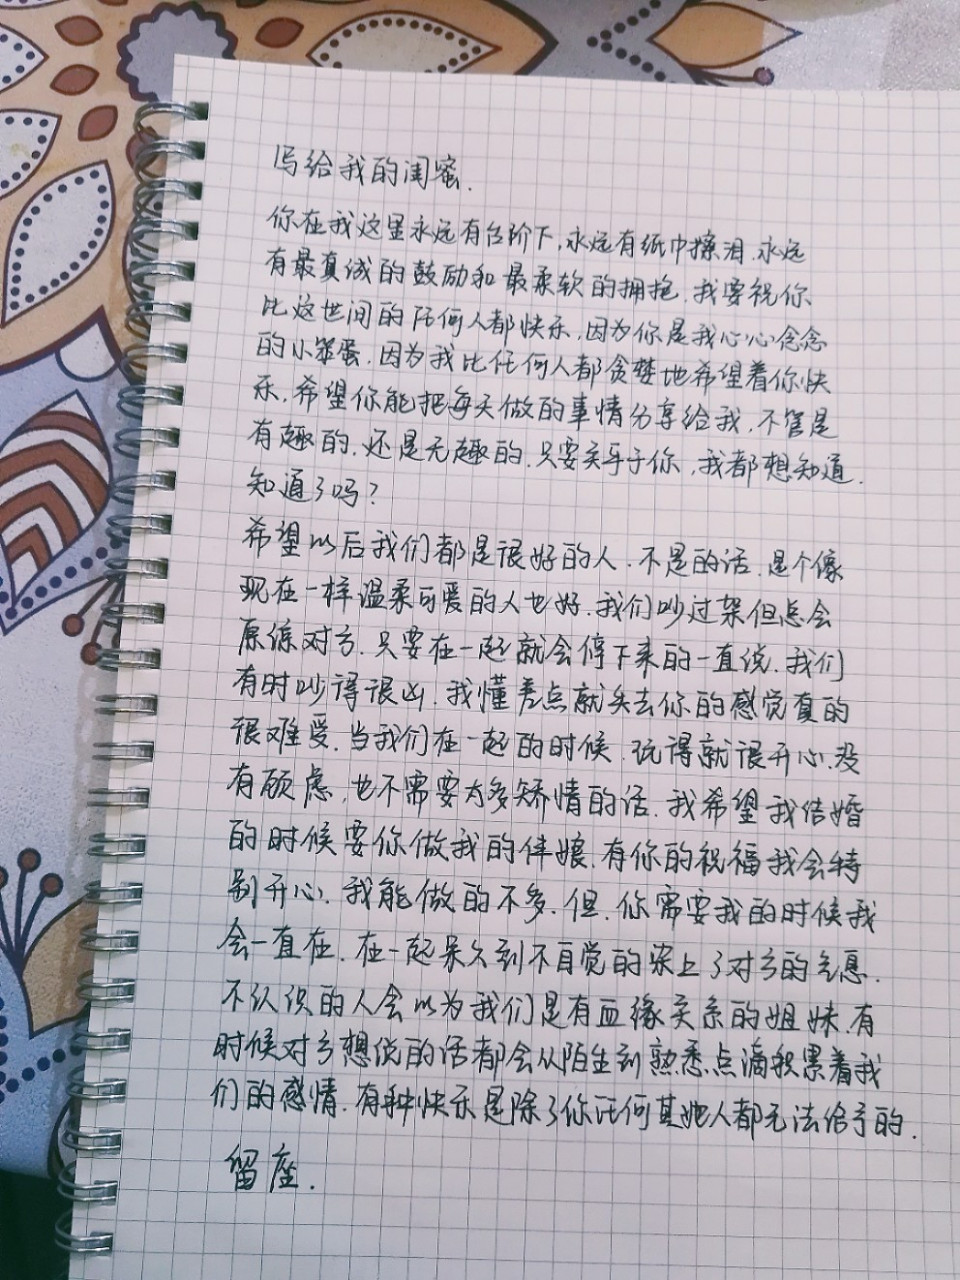 写给我的闺蜜.
你在我这里永远有台阶下,永远有纸巾擦泪.永远
有最真诚的鼓励和最柔软的拥抱.我要祝你
比这世间的任何人都快乐,因为你是我心心念念
的小笨蛋.因为我比任何人都贪婪地希望着你快
乐.希望你能把每天做的事情分享给我,不管是
有趣的.还是无趣的.只要关乎于你,我都想知道.
知道了吗?
希望以后我们都是很好的人.不是的话.是个像
现在一样温柔可爱的人也好.我们吵过架但总会
原谅对方.只要在一起就会停下来的一直说.我们
有时吵得很凶.我懂差点就失去你的感觉真的
很难受.当我们在一起的时候.玩得就很开心.没
有顾虑.也不需要太多矫情的话.我希望我结婚
的时候要你做我的伴娘.有你的祝福我会特
别开心.我能做的不多.但.你需要我的时候我
会一直在.在一起呆久到不自觉的染上了对方的气息.
不认识的人会以为我们是有血缘关系的姐妹.有
时候对方想说的话都会从陌生到熟悉点滴积累着我
们的感情.有种快乐是除了你任何其她人都无法给予的.
留座.